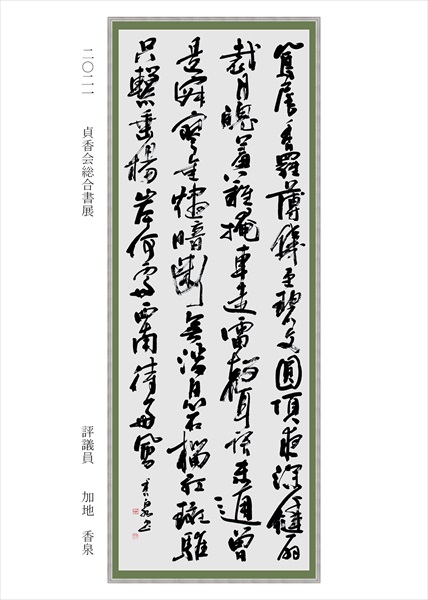 鳳尾香羅薄幾重碧文圓頂夜深縫扇
裁月魄羞難掩車走雷聲語未通曾
是寂寥金燼暗斷無消息石榴紅斑騅
只繫垂楊岸何處西南待好風 香泉
二〇二一 貞香会総合書展
評議員 加地 香泉